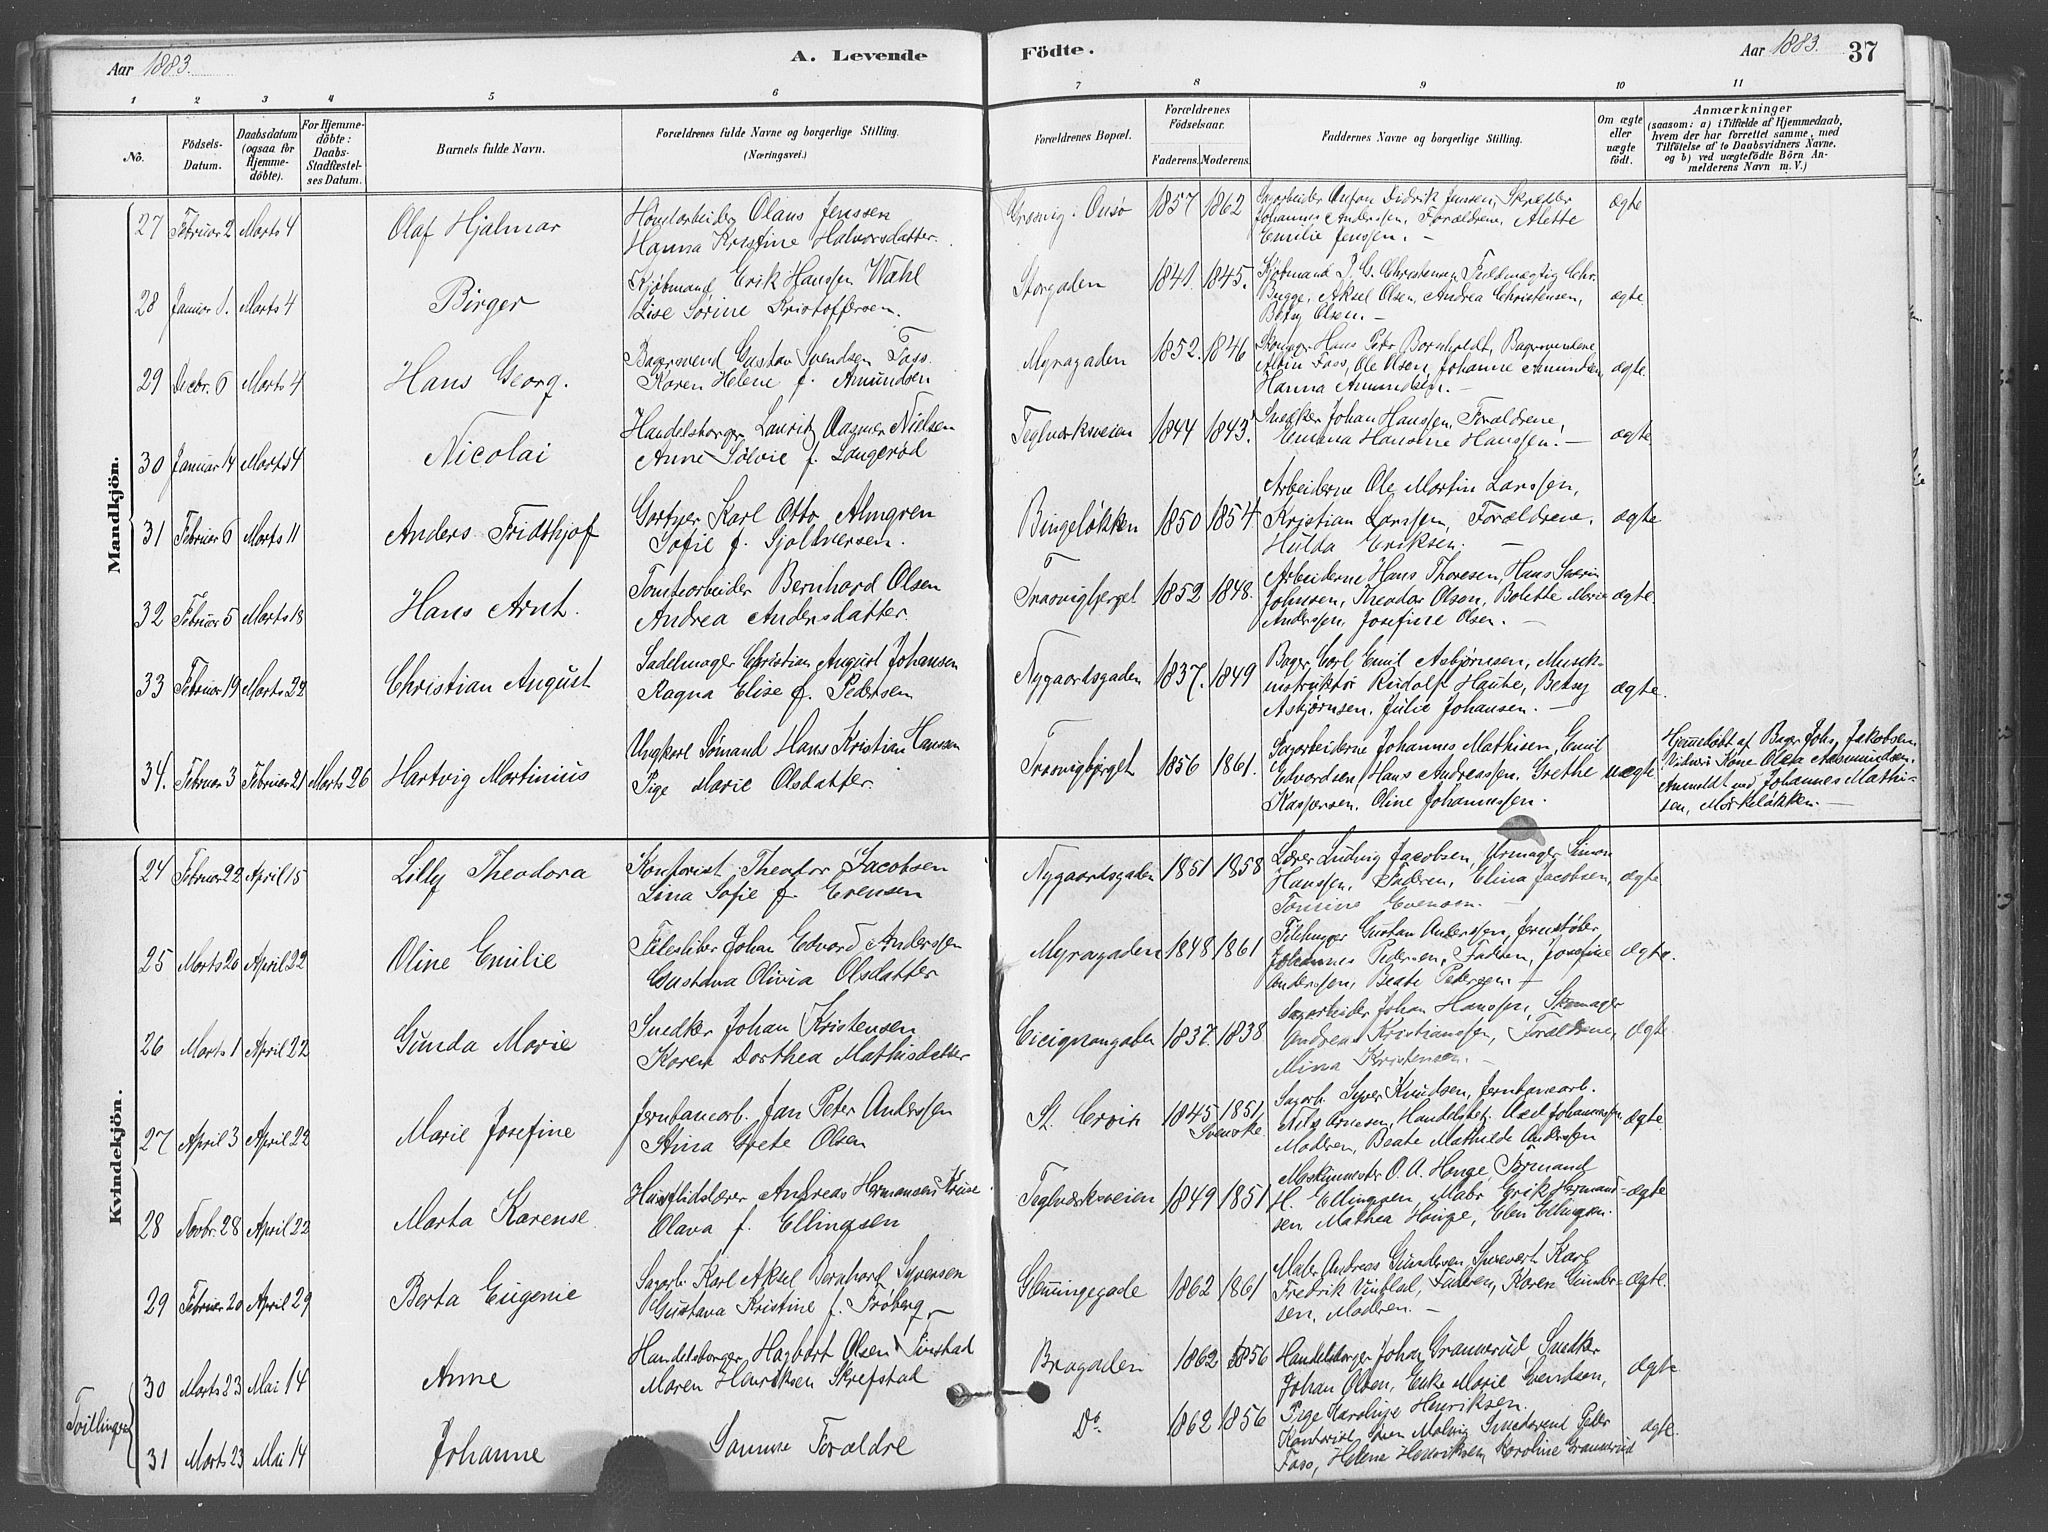 Aar 1883.
A. Levende
Födte.
Aar 1883.
37
1 2 3 4 5 6 7 8 9 10 11
No.
Födsels-
Datum.
Daabsdatum
(ogsaa for
Hjemme-
döbte).
For Hjemme-
döbte:
Daabs-
Stadfæstel-
ses Datum.
Barnets fulde Navn.
Forældrenes fulde Navne og borgerlige Stilling.
(Næringsvei.)
Forældrenes Bopæl.
Forældrenes
Födselsaar.
Faderens. Moderens.
Faddernes Navne og borgerlige Stilling.
Om ægte
eller
uægte
födt.
Anmærkninger
(saasom: a) i Tilfælde af Hjemmedaab,
hvem der har forrettet samme, med
Tilföielse af to Daabsvidners Navne,
og b) ved uægtefödte Börn An-
melderens Navn m. V.)
Mandkjön.
27 Februar 2 Marts 4 Olaf Hjalmar
Olaus Jenssen
Hanna Kristine Halvorsdatter.
Onsø 1857 1862
Sagarbeider Anton Didrik Jensen, Skræder
Johannes Anderssen, Forældrene, Alette
Emilie Jenssen. —
ægte
28 Januar 1. Marts 4 Birger
Kjøbmand Erik Hanssen Wahl
Lise Sørine Kristoffersen.
Storgaden 1841. 1845.
Kjøbmand P. G. Christensen, Fuldmægtig Chr.
Bugge, Aksel Olsen, Andrea Christensen,
Betsy Olsen. —
ægte
29 Decbr. 6 Marts 4 Hans Georg.
Bagersvend Gustav Svendsen Foss.
Karen Helene f. Amundsen
Myragaden 1852. 1846
Skomager Hans Petr Bornholdt, Bagersvendene
Albin Foss, Ole Olsen, Johanne Amundsen,
Hanna Amundsen. —
ægte.
30 Januar 14 Marts 4 Nicolai
Handelsborger Lauritz Nielsen
Anne Sølvie f. Langerød
Teglværksveien 1844 1843.
Snedker Johan Hanssen, Forældrene,
Emma Hansine Hanssen. —
ægte
31 Februar 6 Marts 11 Anders Fridthjof
Karl Otto Almgren
Sofie f. Sjoldnersen.
Bingeløkken 1850 1854
Arbeiderne Ole Martin Larssen,
Kristian Larssen, Forældrene,
Hulda Eriksen. —
ægte
32 Februar 5 Marts 18 Hans Arnt.
Tomtearbeider Bernhard Olsen
Andrea Andersdatter.
Traavigbjerget 1852 1848.
Arbeiderne Hans Thoresen, Hans Severin
Johnsen, Theodor Olsen, Bolette Marie
Anderssen, Josefine Olsen. —
ægte.
33 Februar 19 Marts 22 Christian August
Sadelmager Christian August Johansen
Ragna Elise f. Pedersen
Nygaardsgaden 1837. 1849
Bager Carl Emil Asbjørnsen, Musik-
instruktør Rudolf Haube, Betsy
Asbjørnsen, Julie Johansen. —
ægte.
34. Februar 3 Februar 21 Marts 26 Hartvig Martinius
Ungkarl Sømand Hans Kristian Hanssen
Pige Marie Olsdatter.
Traavigbjerget 1856 1861.
Sagarbeiderne Johannes Mathisen, Emil
Edvardsen, Hans Andreassen, Grethe
Kaspersen, Oline Johannessen.
uægte
Hjemmedøbt af Bager Johs. Jakobsen.
Vidner: Kone Olea Aasmundsen.
Anmeldt ved Johannes Mathi-
sen, Mørkeløkken. —
Kvindekjön.
24 Februar 22 April 15 Lilly Theodora
Kontorist Theodor Jacobsen
Lina Sofie f. Evensen
Nygaardsgaden 1851 1858
Lærer Ludvig Jacobsen, Urmager Simon
Hanssen, Faderen, Elina Jacobsen,
Tomine Evensen. —
ægte
25 Marts 20 April 22 Oline Emilie
Filesliber Johan Edvard Anderssen
Gustava Olivia Olsdatter
Myragaden 1848 1861
Filehugger Gustav Anderssen, Jernstøber
Johannes Pedersen, Faderen, Josefine
Anderssen, Beate Petersen —
ægte.
26 Marts 1 April 22 Gunda Marie
Snedker Johan Kristensen
Karen Dorthea Mathisdatter
Cicignongaden 1837. 1838
Sagarbeider Johan Hanssen, Skomager
Andreas Kristianssen, Forældrene,
Mina Kristensen. —
ægte
27 April 3 April 22 Marie Josefine
Jernbanearb. Jan Peter Anderssen
Stina Grete Olsen
St. Croix 1845 1851
Svenske.
Sagarb. Syver Knudsen, Jernbanearb.
Nils Arnesen, Handelsbetj. Axel Johannessen,
Moderen, Beate Mathilde Anderssen
ægte.
28 Novbr. 28 April 22 Marta Karense.
Husflidslærer Andreas Hermansen Kruse
Olava f. Ellingsen
Teglværksveien 1849 1851
Maskinmester O. A. Hauge, Formand
H. Ellingsen, Malr Erik Hermand-
sen, Mathea Hauge, Elen Ellingsen.
ægte
29 Februar 20 April 29 Berta Eugenie
Sagarb. Karl Aksel Bernhard Syversen
Gustava Kristine f. Frøberg
Glemmingegade 1862 1861
Malr Andreas Gundersen, Karl
Fredrik Vindblad, Faderen, Karen Gunder-
sen, Moderen. —
ægte.
Tvillinger
30 Marts 23 Mai 14 Anne
Handelsborger Hagbart Olsen Tinstad
Maren Henriksen Skrefstad
Brogaden 1862 1856
Handelsborger Johan Granerud, Snedker
Johan Olsen, Enke Marie Svendsen,
Pige Karoline Henriksen.
ægte
31 Marts 23 Mai 14 Johanne
Samme Forældre
Do. 1862 1856
Kontorist Sven Malvig, Smedsvend Peder
Foss, Helene Henriksen, Karoline Granerud
ægte.